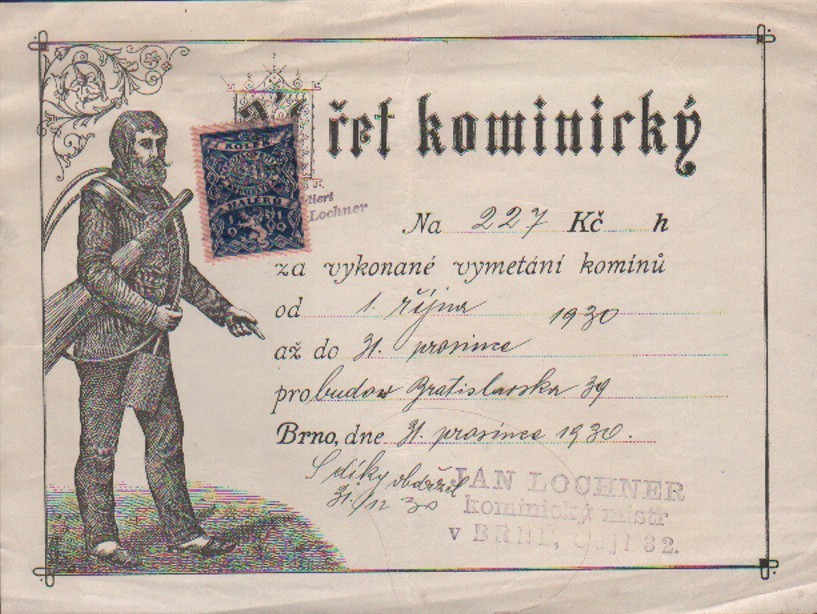 řet kominický
KOLEK
HALÉŘŮ
1919
Lochner
Na 227 Kč h
za vykonané vymetání komínů
od 1. října 1930
až do 31. prosince
pro budov Bratislavska 39
Brno, dne 31. prosince 1930.
S díky obdržel
31./12 30
JAN LOCHNER
kominický mistr
v BRNĚ, 32.